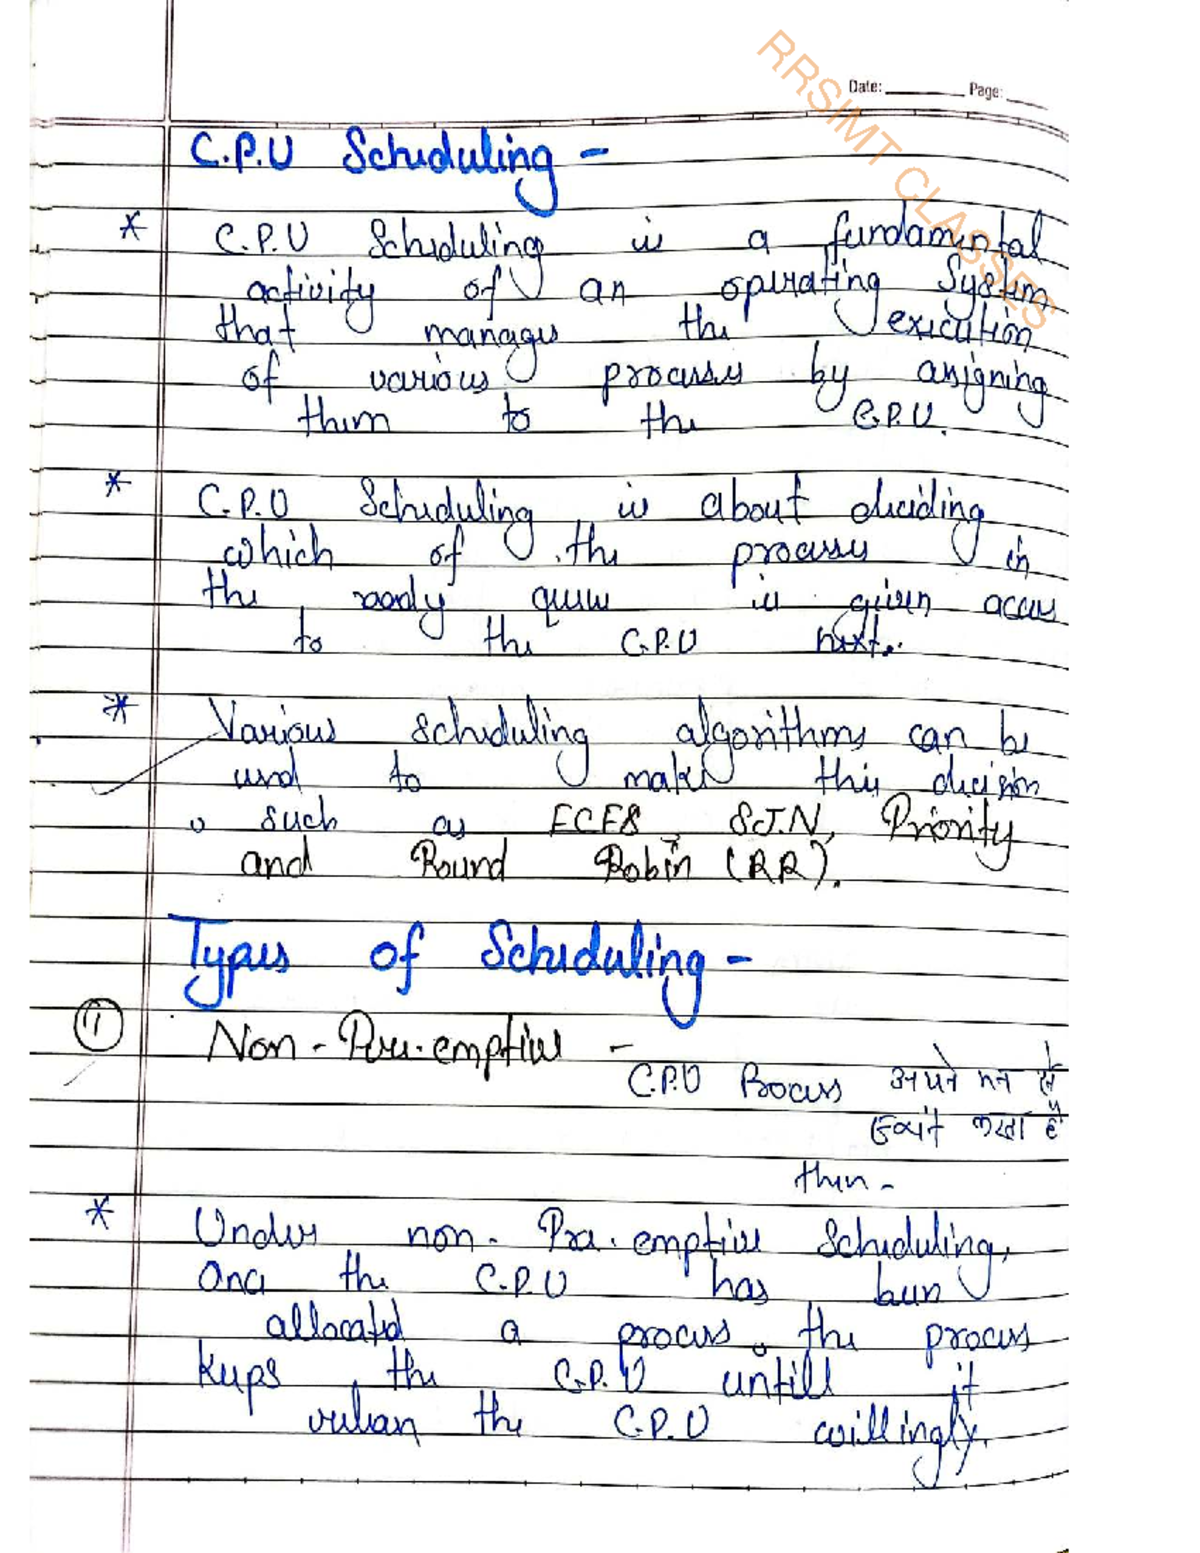 RRSIMT CLASSES
Date: Page:
C.P.U Scheduling -
* C.P.U Scheduling is a fundamental
activity of an operating System
that manages the execution
of various processes by assigning
them to the C.P.U.
* C.P.U Scheduling is about deciding
which of the processes in
the ready queue is given access
to the C.P.U next.
* Various scheduling algorithms can be
used to make this decision
such as FCFS, SJN, Priority
and Round Robin (RR).
Types of Scheduling -
1 Non-Pre-emptive -
C.P.U Process अपने मन से
करता है
then -
* Under non-Pre-emptive Scheduling,
Once the C.P.U has been
allocated a process, the process
keeps the C.P.U untill it
the C.P.U willingly.